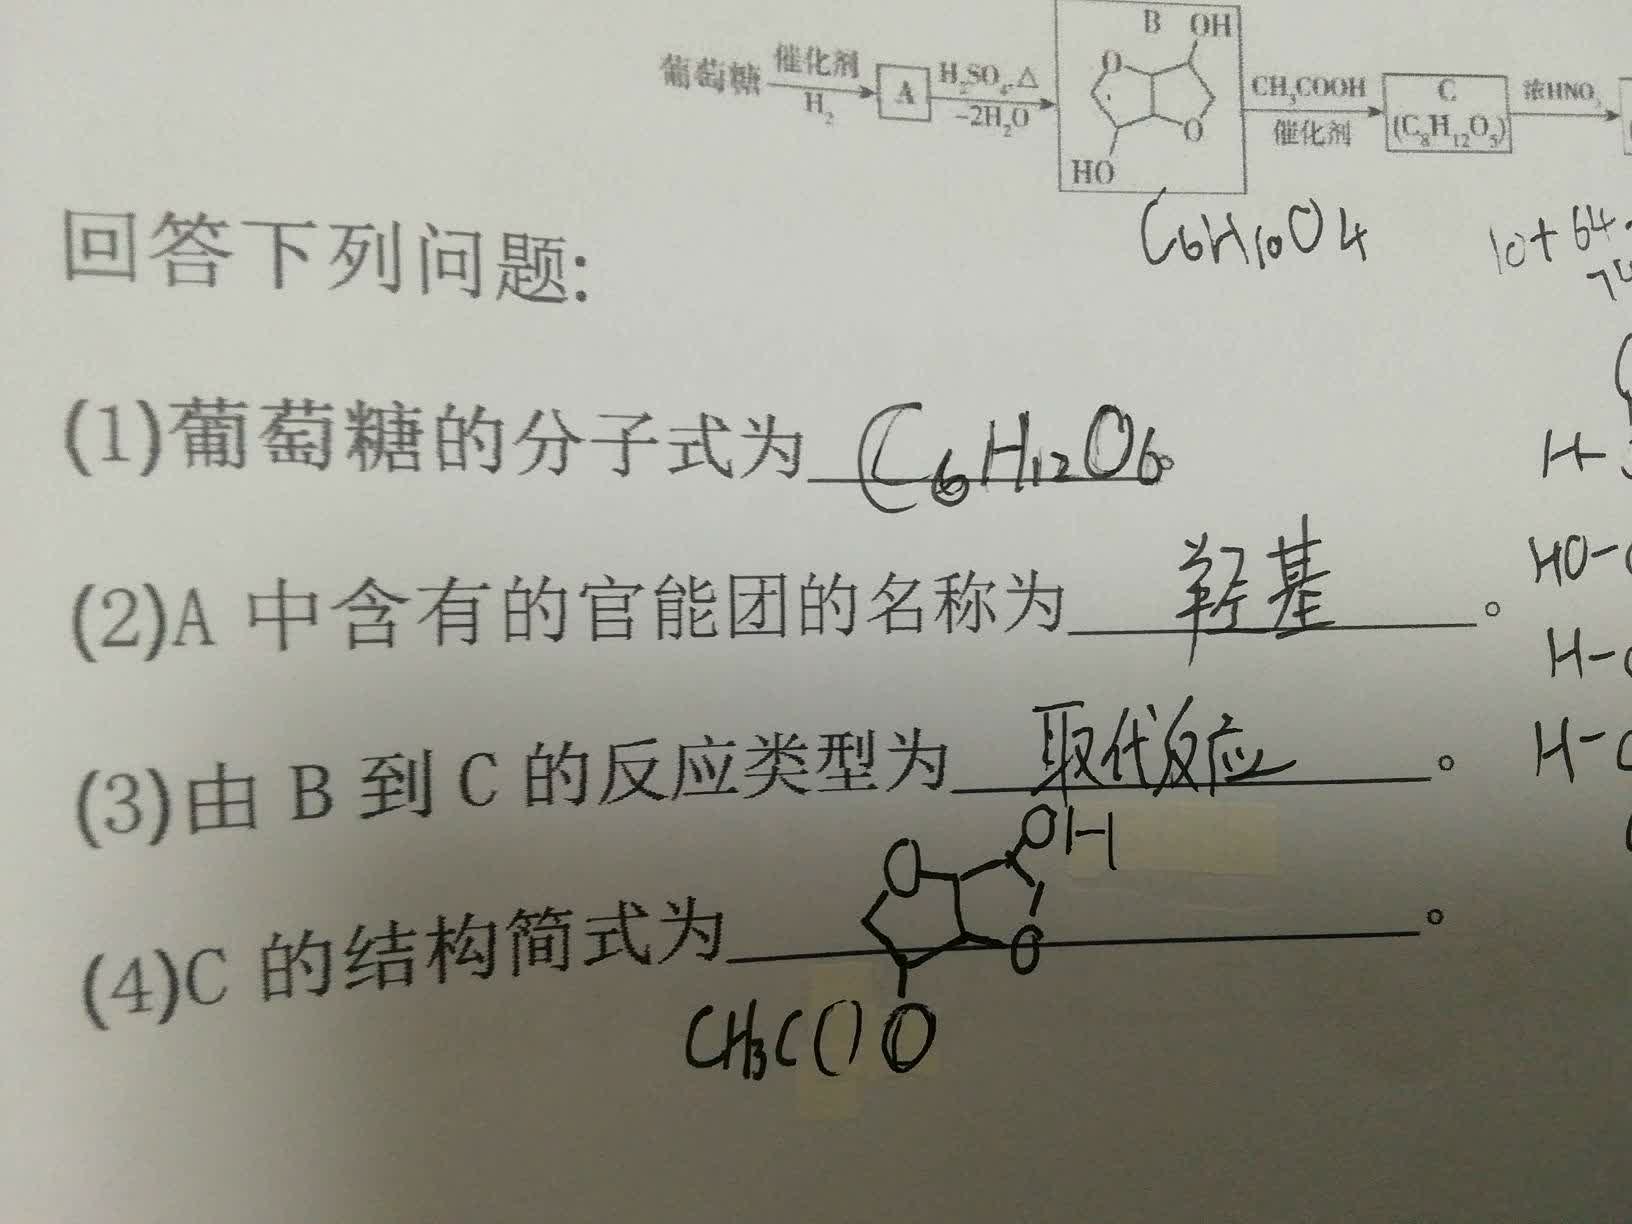 B OH
葡萄糖 催化剂 H₂ A H₂SO₄,△ -2H₂O O O CH₃COOH 催化剂 C (C₈H₁₂O₅) 浓HNO₃
HO
C₆H₁₀O₄ 10+64
回答下列问题:
(1)葡萄糖的分子式为 C₆H₁₂O₆。
H-
(2)A 中含有的官能团的名称为 羟基 。
HO-
H-
(3)由 B 到 C 的反应类型为 取代反应 。
H-
(4)C 的结构简式为 O OH O 。
CH₃COO